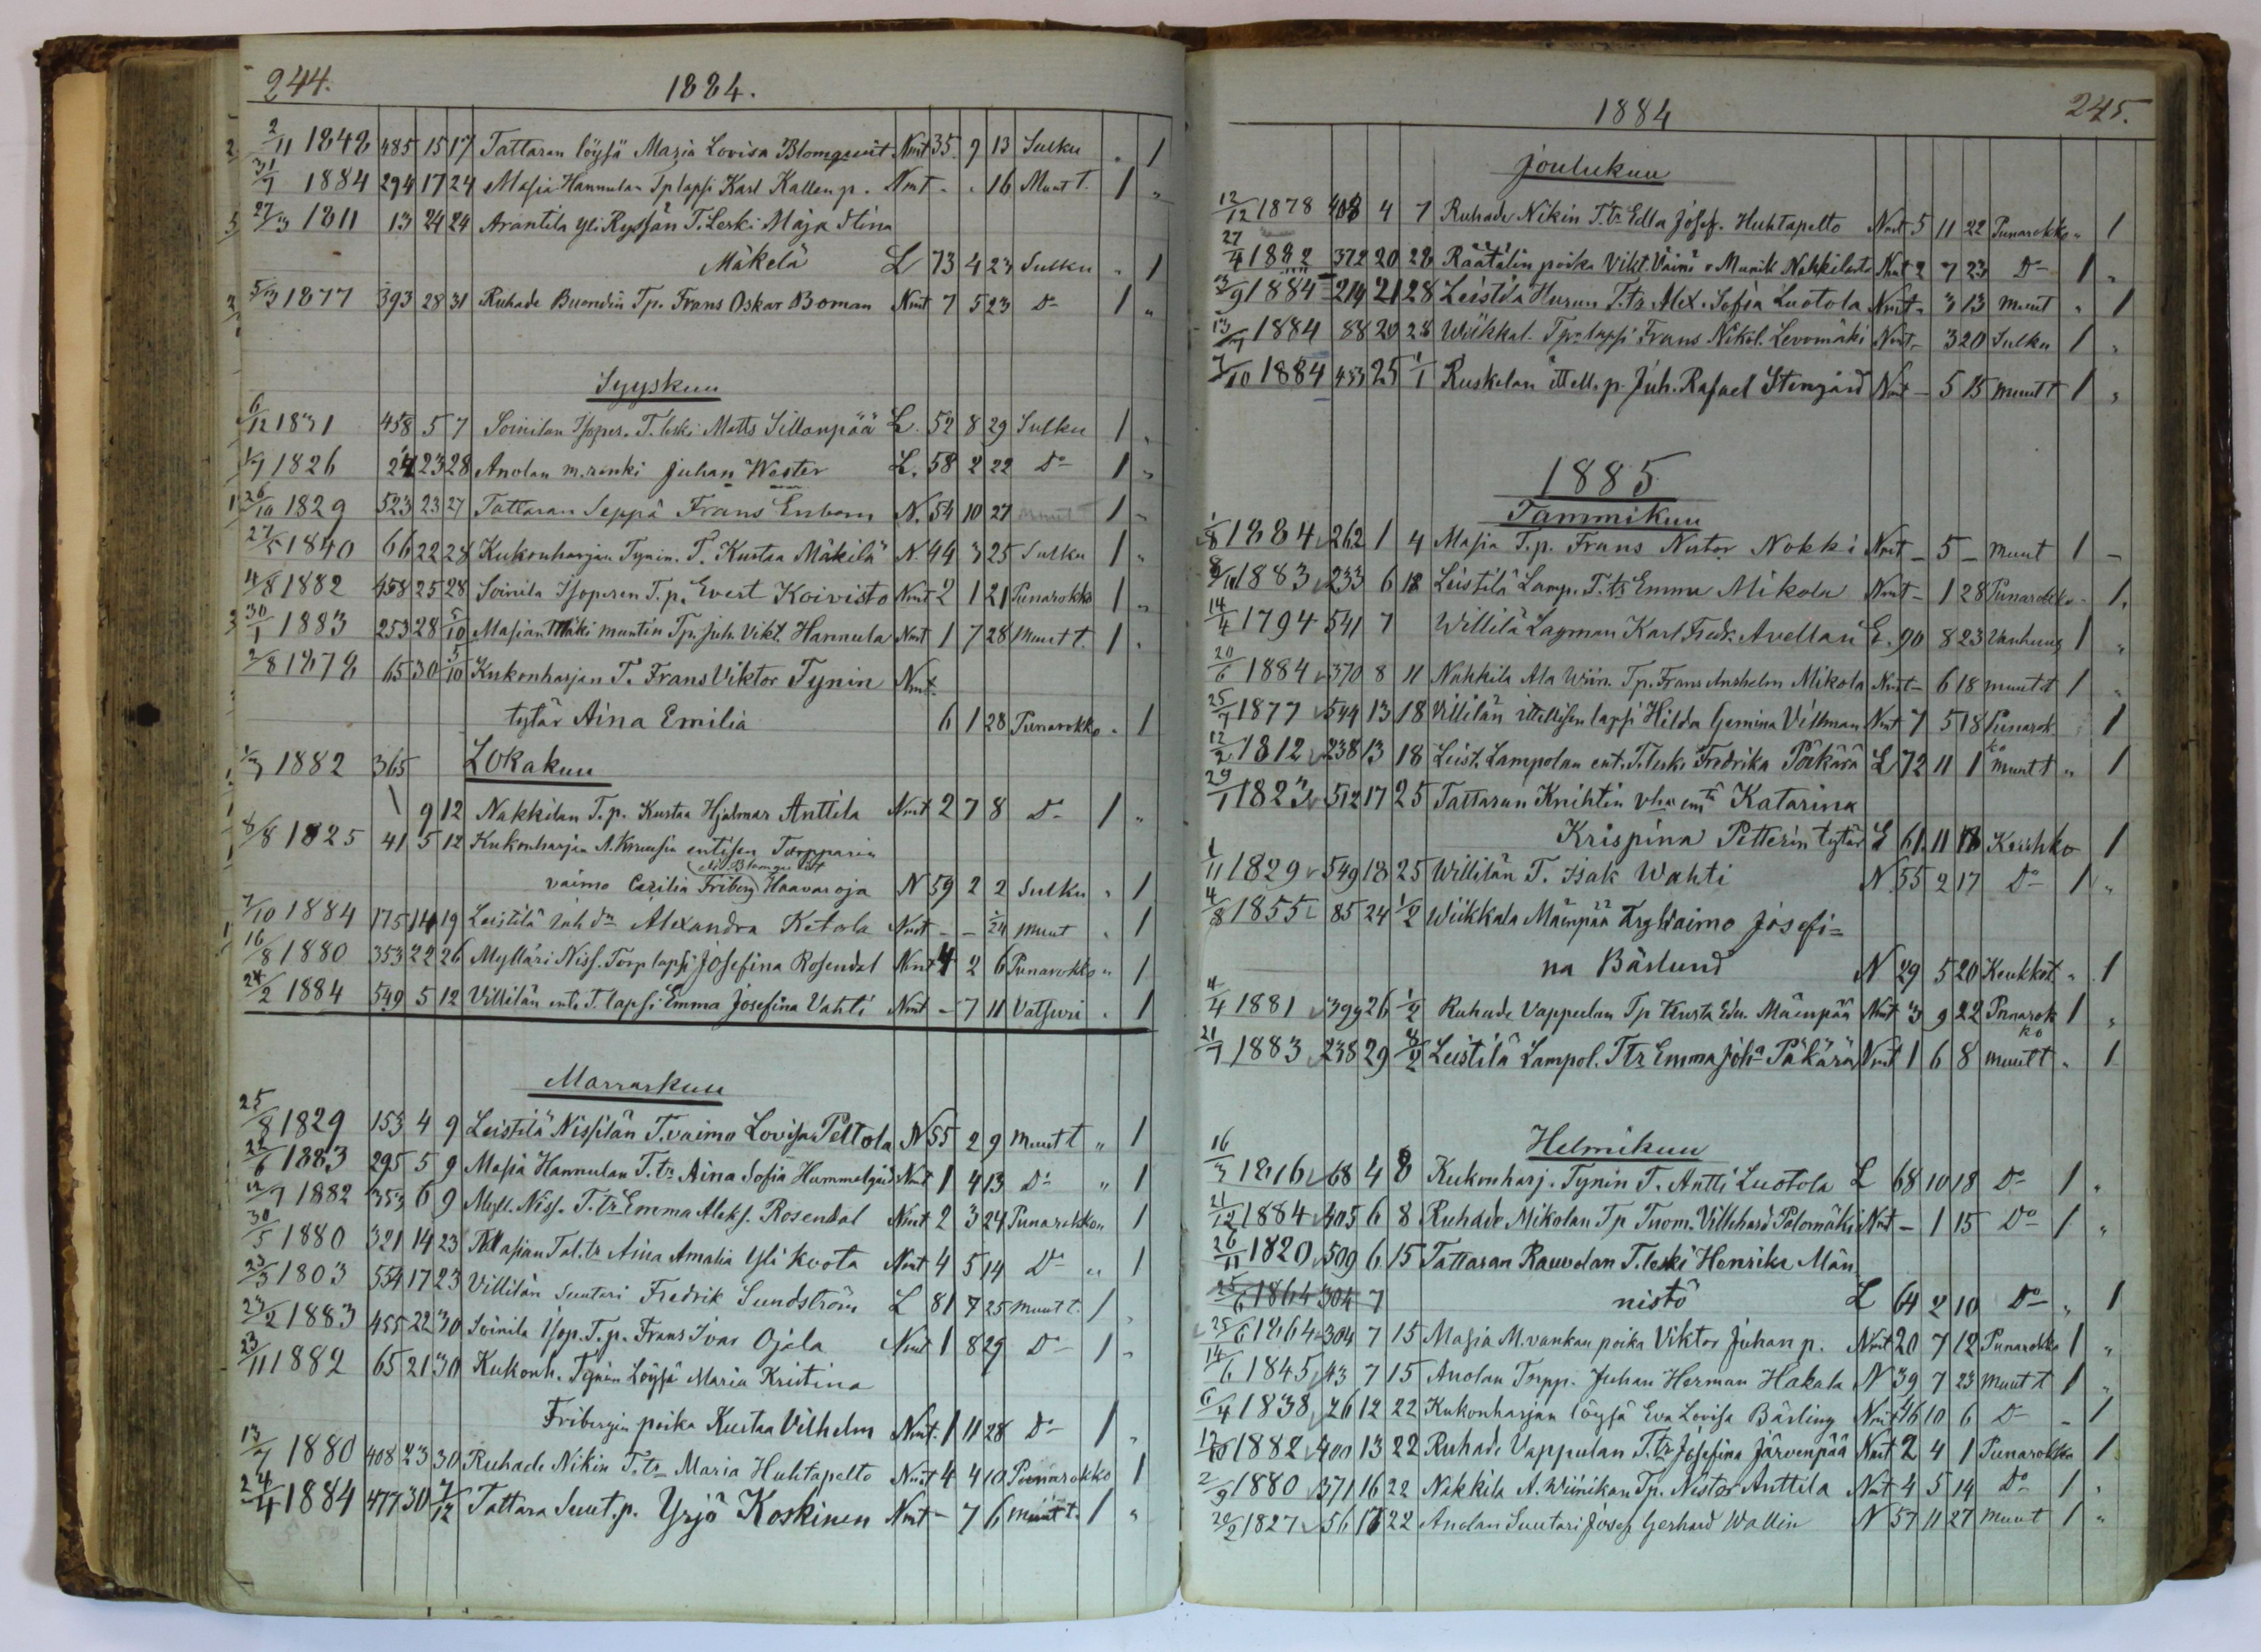 244. 1884.
2/11 1848 485 15 17 Tattaran löysä Maria Lovisa Blomqvist Nmt 35 9 13 Sulku " 1
31/7 1884 294 17 24 Masia Hannulan Tp lapsi Karl Kallen p. Nmt - - 16 Muut t. 1 "
27/3 1811 13 24 24 Arantila yli Ryssän T. Leski Maja Stina
Mäkelä L 73 4 23 Sulku " 1
5/3 1877 393 28 31 Ruhade Tp. Frans Oskar Boman Nmt 7 5 23 Do 1 "
Syyskuu
6/12 1831 458 5 7 Soinilan T. leski Matts Sillanpää L. 52 8 29 Sulku 1 "
1/7 1826 24 23 28 Anolan m.renki Juhan Wester L. 58 2 22 Do 1 "
26/10 1829 523 23 27 Tattaran Seppä Frans Enbom N. 54 10 27 Muut t 1 "
27/5 1840 66 22 28 Kukonharjan Tynin. T. Kustaa Mäkilä N. 44 3 25 Sulku 1 "
4/8 1882 458 25 28 Soinila Isoperen T. p. Evert Koivisto Nmt 2 1 21 Punarokko 1 "
30/1 1883 253 28 5/10 Masian Mäki muntin Tp. Juh. Vikt. Hannula Nmt 1 7 28 Muut t. 1 "
2/8 1878 65 30 5/10 Kukonharjan T. Frans Viktor Tynin Nmt.
tytär Aina Emilia 6 1 28 Punarokko " 1
1/3 1882 365 Lokakuu
9 12 Nakkilan T. p. Kustaa Hjalmar Anttila Nmt 2 7 8 Do 1 "
8/8 1825 41 5 12 Kukonharjan A. entisen Torpparin
vaimo Cezilia Friberg Haavaroja N 59 2 2 Sulku " 1
7/10 1884 175 14 19 Leistilä Alexandra Ketola Nmt - - 1/24 muut " 1
16/8 1880 353 22 26 Mylläri Niss. Torp lapsi Josefina Rosendal Nmt 4 2 6 Punarokko " 1
24/2 1884 549 5 12 Villilän ent. T. lapsi Emma Josefina Vahti Nmt - 7 11 Vatsuri " 1
Marraskuu
25/8 1829 153 4 9 Leistilä Nissilän T. vaimo Lovisa Peltola N 55 2 9 muut t " 1
22/6 1883 295 5 9 Masia Hannulan T. tr Aina Sofia Hummelgård Nmt 1 4 13 Do " 1
12/7 1882 353 6 9 Myll. Niss. T. tr Emma Aleks. Rosendal Nmt 2 3 24 Punarokko " 1
30/5 1880 321 14 23 Masian Tal. tr Aina Amalia Yli Kvota Nmt 4 5 14 Do " 1
23/3 1803 554 17 23 Villilän Suutari Fredrik Sundström L 81 7 25 muut t. 1 "
23/2 1883 455 22 30 Soinila Isop. T. p. Frans Ivar Ojala Nmt 1 8 29 Do 1 "
23/11 1882 65 21 30 Kukonh. Tynin Löysä Maria Kristina
Fribergin poika Kustaa Vilhelm Nmt. 1 11 28 Do 1 "
13/7 1880 408 23 30 Ruhade Nikin T. tr Maria Huhtapelto Nmt 4 4 10 Punarokko 1
24/4 1884 477 30 7/12 Tattara Suut. p. Yrjö Koskinen Nmt - 7 6 muut t. 1 "
1884 245.
Joulukuu
12/12 1878 408 4 7 Ruhade Nikin T. tr Edla Josef. Huhtapelto Nmt 5 11 22 Punarokko " 1
27/4 1882 372 20 28 Räätälin poika Vikt. Väinö Nmt 2 7 23 Do 1 "
13/9 1884 214 21 28 Leistilä Hurun T. tr Alex. Sofia Luotola Nmt - 3 13 muut " 1
13/7 1884 88 20 28 Wiikkal. Tp lapsi Frans Nikol. Levomäki Nmt - 3 20 Sulku 1 "
7/10 1884 453 25 1/1 Ruskelan ittell. p. Juh. Rafael Stengård Nmt - 5 15 muut t 1 "
1885
Tammikuu
1/8 1884 262 1 4 Masia T. p. Frans Nestor Nokki Nmt - 5 - muut 1 -
8/11 1883 233 6 18 Leistilä Lamp. T. tr Emma Mikola Nmt - 1 28 Punarokko - 1.
14/4 1794 541 7 Willilä Lagman Karl Fredr. Avellan E. 90 8 23 Vanhuus 1 "
20/6 1884 370 8 11 Nakkila Ala Wiin. Tp. Frans Anshelm Mikola Nmt - 6 18 muut t 1 "
25/7 1877 544 13 18 Villilän ittellisen lapsi Hilda Gemina Villman Nmt 7 5 18 Punarok 1
12/2 1812 238 13 18 Leist. Lampolan ent. T. leski Fredrika Päkärä L 72 11 1 ko muut t " 1
29/1 1823 512 17 25 Tattaran Knihtin Katarina
Krispina Petterin tytär L 61 11 18 Keuhko 1
1/11 1829 549 18 25 Willilän T. Isak Wahti N 55 2 17 Do 1 "
4/8 1855 85 24 1/2 Wiikkala Mäenpää vaimo Josefi=
na Bärlund N 29 5 20 Keuhkot. " 1
4/4 1881 399 26 1/2 Ruhade Vappulan Tp Kusta Edv. Mäenpää Nmt 3 9 22 Punarok 1 "
ko
21/7 1883 238 29 4/2 Leistilä Lampol. T tr Emma Joh:a Päkärä Nmt 1 6 8 muut t " 1
Helmikuu
16/3 1816 68 4 8 Kukonharj. Tynin T. Antti Luotola L 68 10 18 Do 1 "
21/12 1884 405 6 8 Ruhade Mikolan Tp Tuom. Villehard Palomäki Nmt - 1 15 Do 1 "
26/11 1820 509 6 15 Tattaran Rauvolan T. leski Henrika Män
25/6 1864 304 7 nistö L 64 2 10 Do " 1
25/6 1864 304 7 15 Masia M. vankan poika Viktor Juhan p. Nmt 20 7 12 Punarokko 1 "
14/6 1845 43 7 15 Anolan Torpp. Juhan Herman Hakala N 39 7 23 muut t 1 "
6/4 1838 26 12 22 Kukonharjan löysä Eva Lovisa Bärling Nmt 46 10 6 Do - 1
12/10 1882 400 13 22 Ruhade Vappulan T. tr Josefina Järvenpää Nmt 2 4 1 Punarokko 1
2/9 1880 371 16 22 Nakkila A. Wiinikan Tp. Nestor Anttila Nmt 4 5 14 Do 1 "
20/2 1827 56 17 22 Anolan Suutari Josef Gerhard Wallin N 57 11 27 muut 1 "